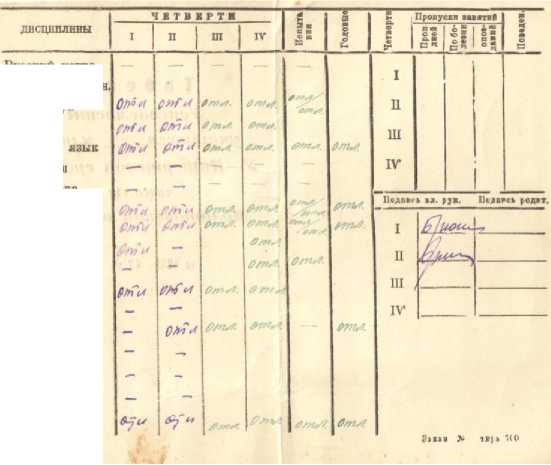 ДИСЦИПЛИНЫ ЧЕТВЕРТИ Испыта ния Годовые Четверти Пропуски занятий Поведен.
I II III IV Проп дней По бо- лезни опоз- даний
— — — — — — I
н.
отл отл отл. отл. отл/отл. II
отл отл отл. отл.
язык отл отл отл. отл. отл. отл. III
— — — — — IV
— — — —
Подпись кл. рук. Подпись родит.
отл отл отл. отл. отл/отл. отл.
отл отл отл. отл. отл/отл. отл. I
отл — отл.
— — отл. отл. II
отл отл отл. отл. III
— — IV
— отл отл. отл. — отл.
— —
— —
— —
отл отл отл. отл. отл. отл.
Заказ №